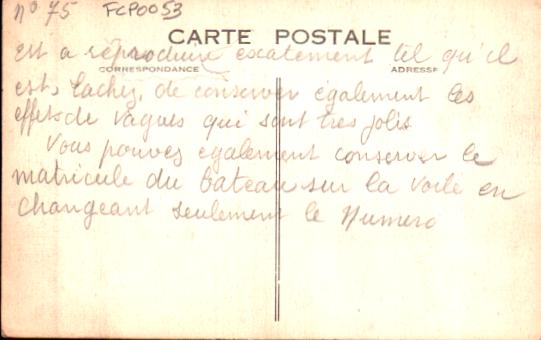 n° 75 FCP0053
CARTE POSTALE
est a reproduire exatement tel qu'il
CORRESPONDANCE ADRESSE
est, tachez, de conserver également les
effets de vagues qui sont tres jolis
Vous pouvez egalement conserver le
matricule du bateau sur la voile en
changeant seulement le Numero